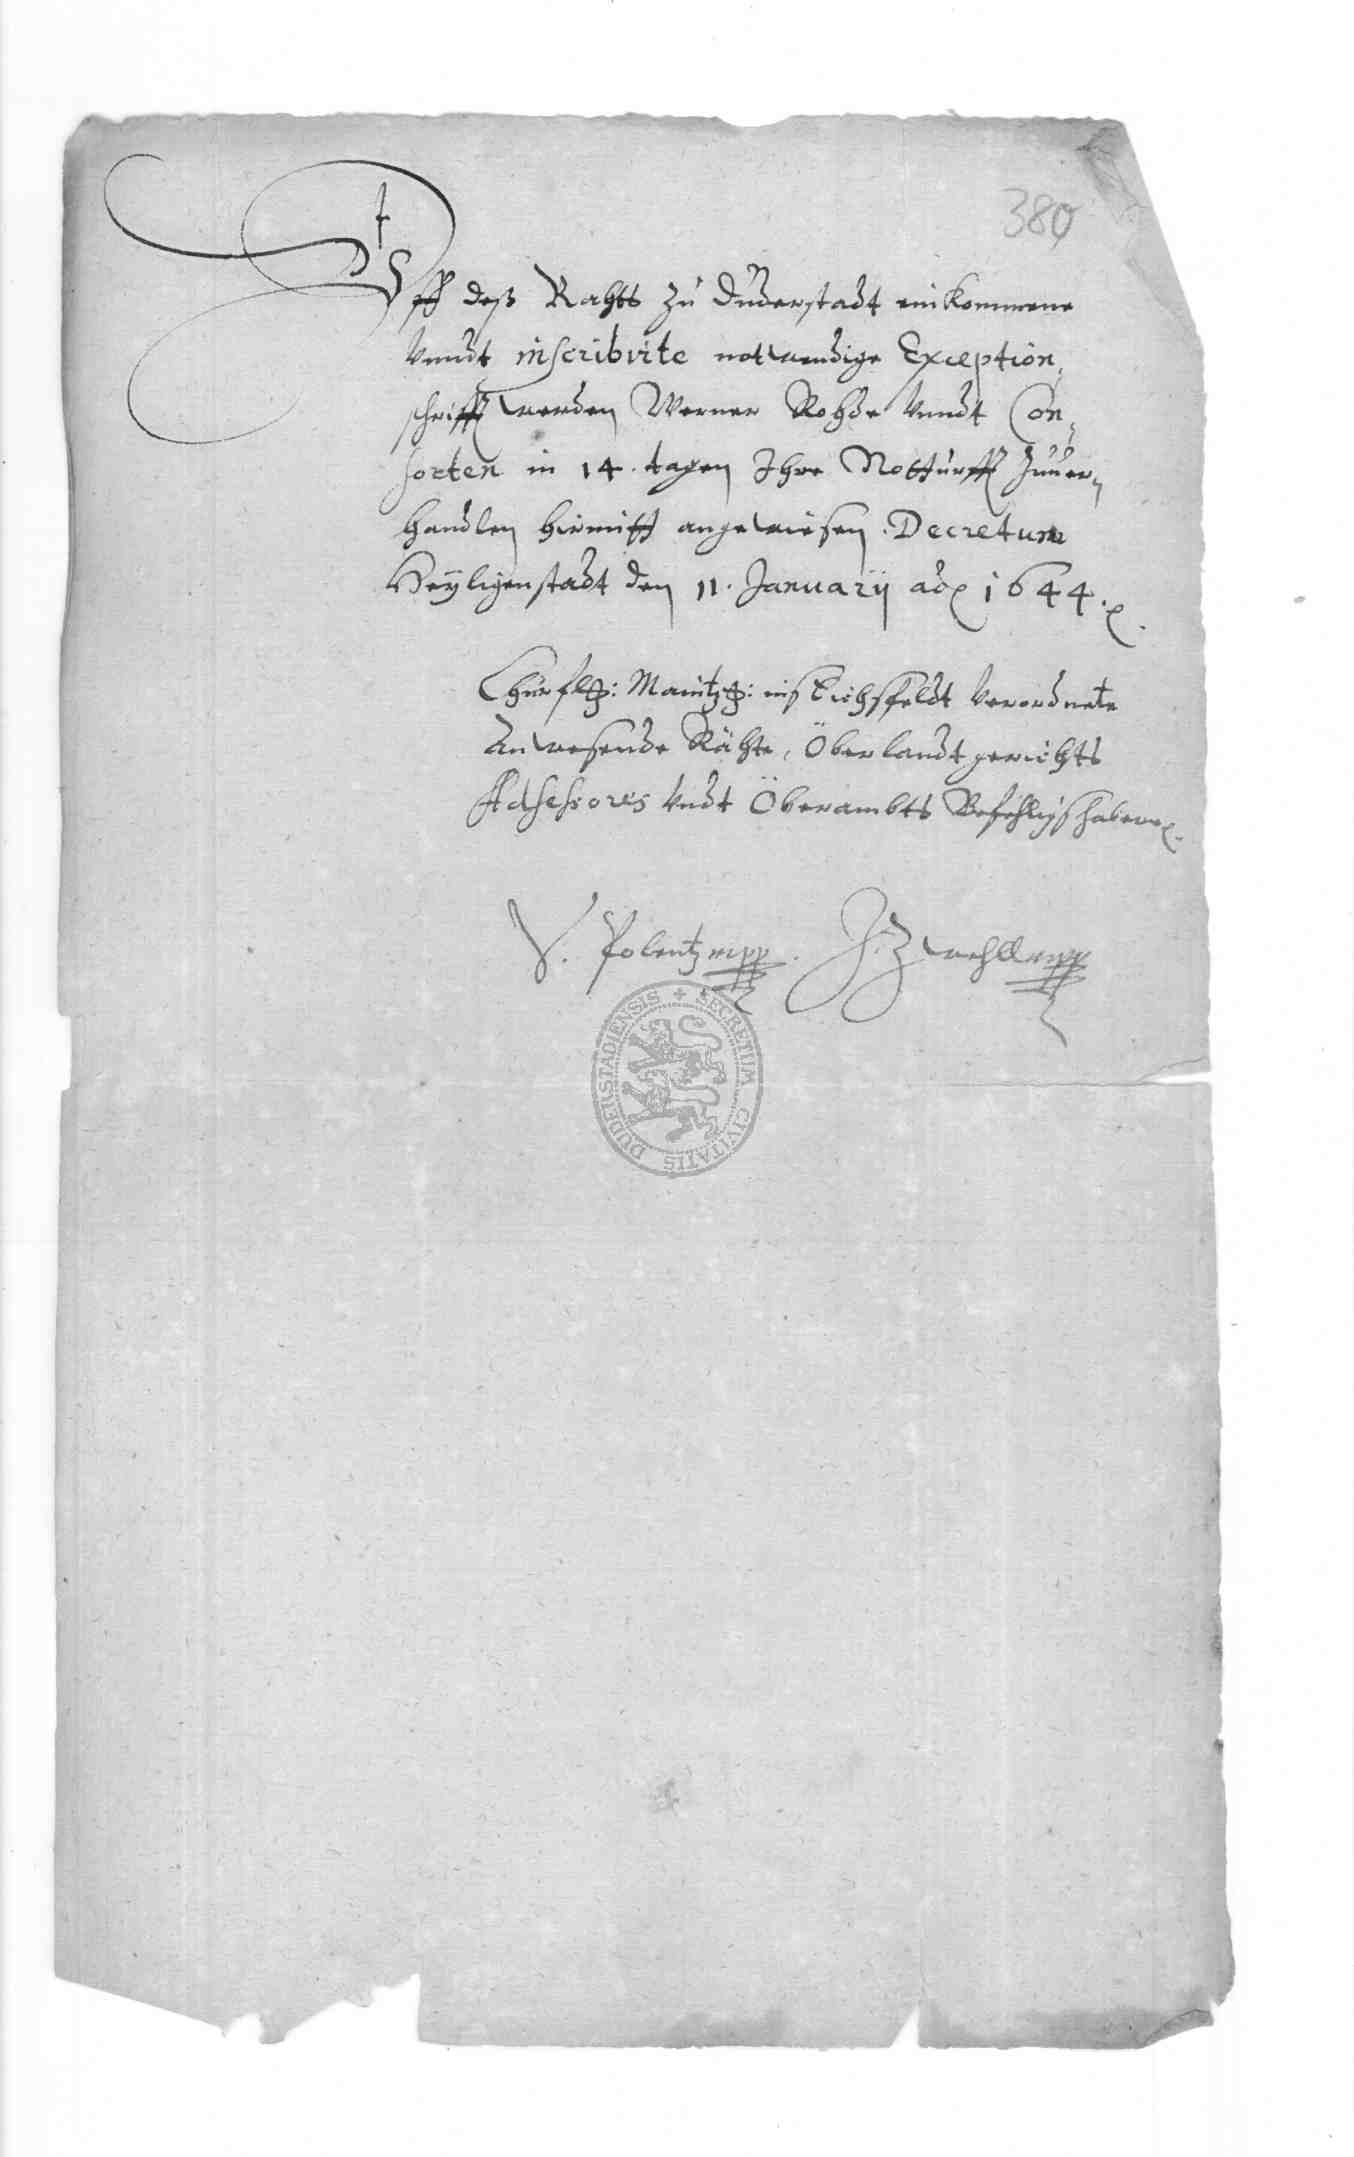 380
Vff deß Rahts zu Duderstadt einkommene
vnndt inscribirte notwendige Exception
schrifft werden Werner Rohde vnndt Con
sorten in 14. tagen Ihre Notturfft zuuer
handlen hiermitt angewiesen. Decretum
Heyligenstadt den 11. Januarij ao 1644.
Churfl: Maintz: ins Eichsfeldt verordnete
Anwesende Rähte, Oberlandtgerichts
Adsessores vndt Oberambts Befehlighabere
V. Polentz mpp.
DUDERSTADIENSIS + SECRETUM CIVITATIS